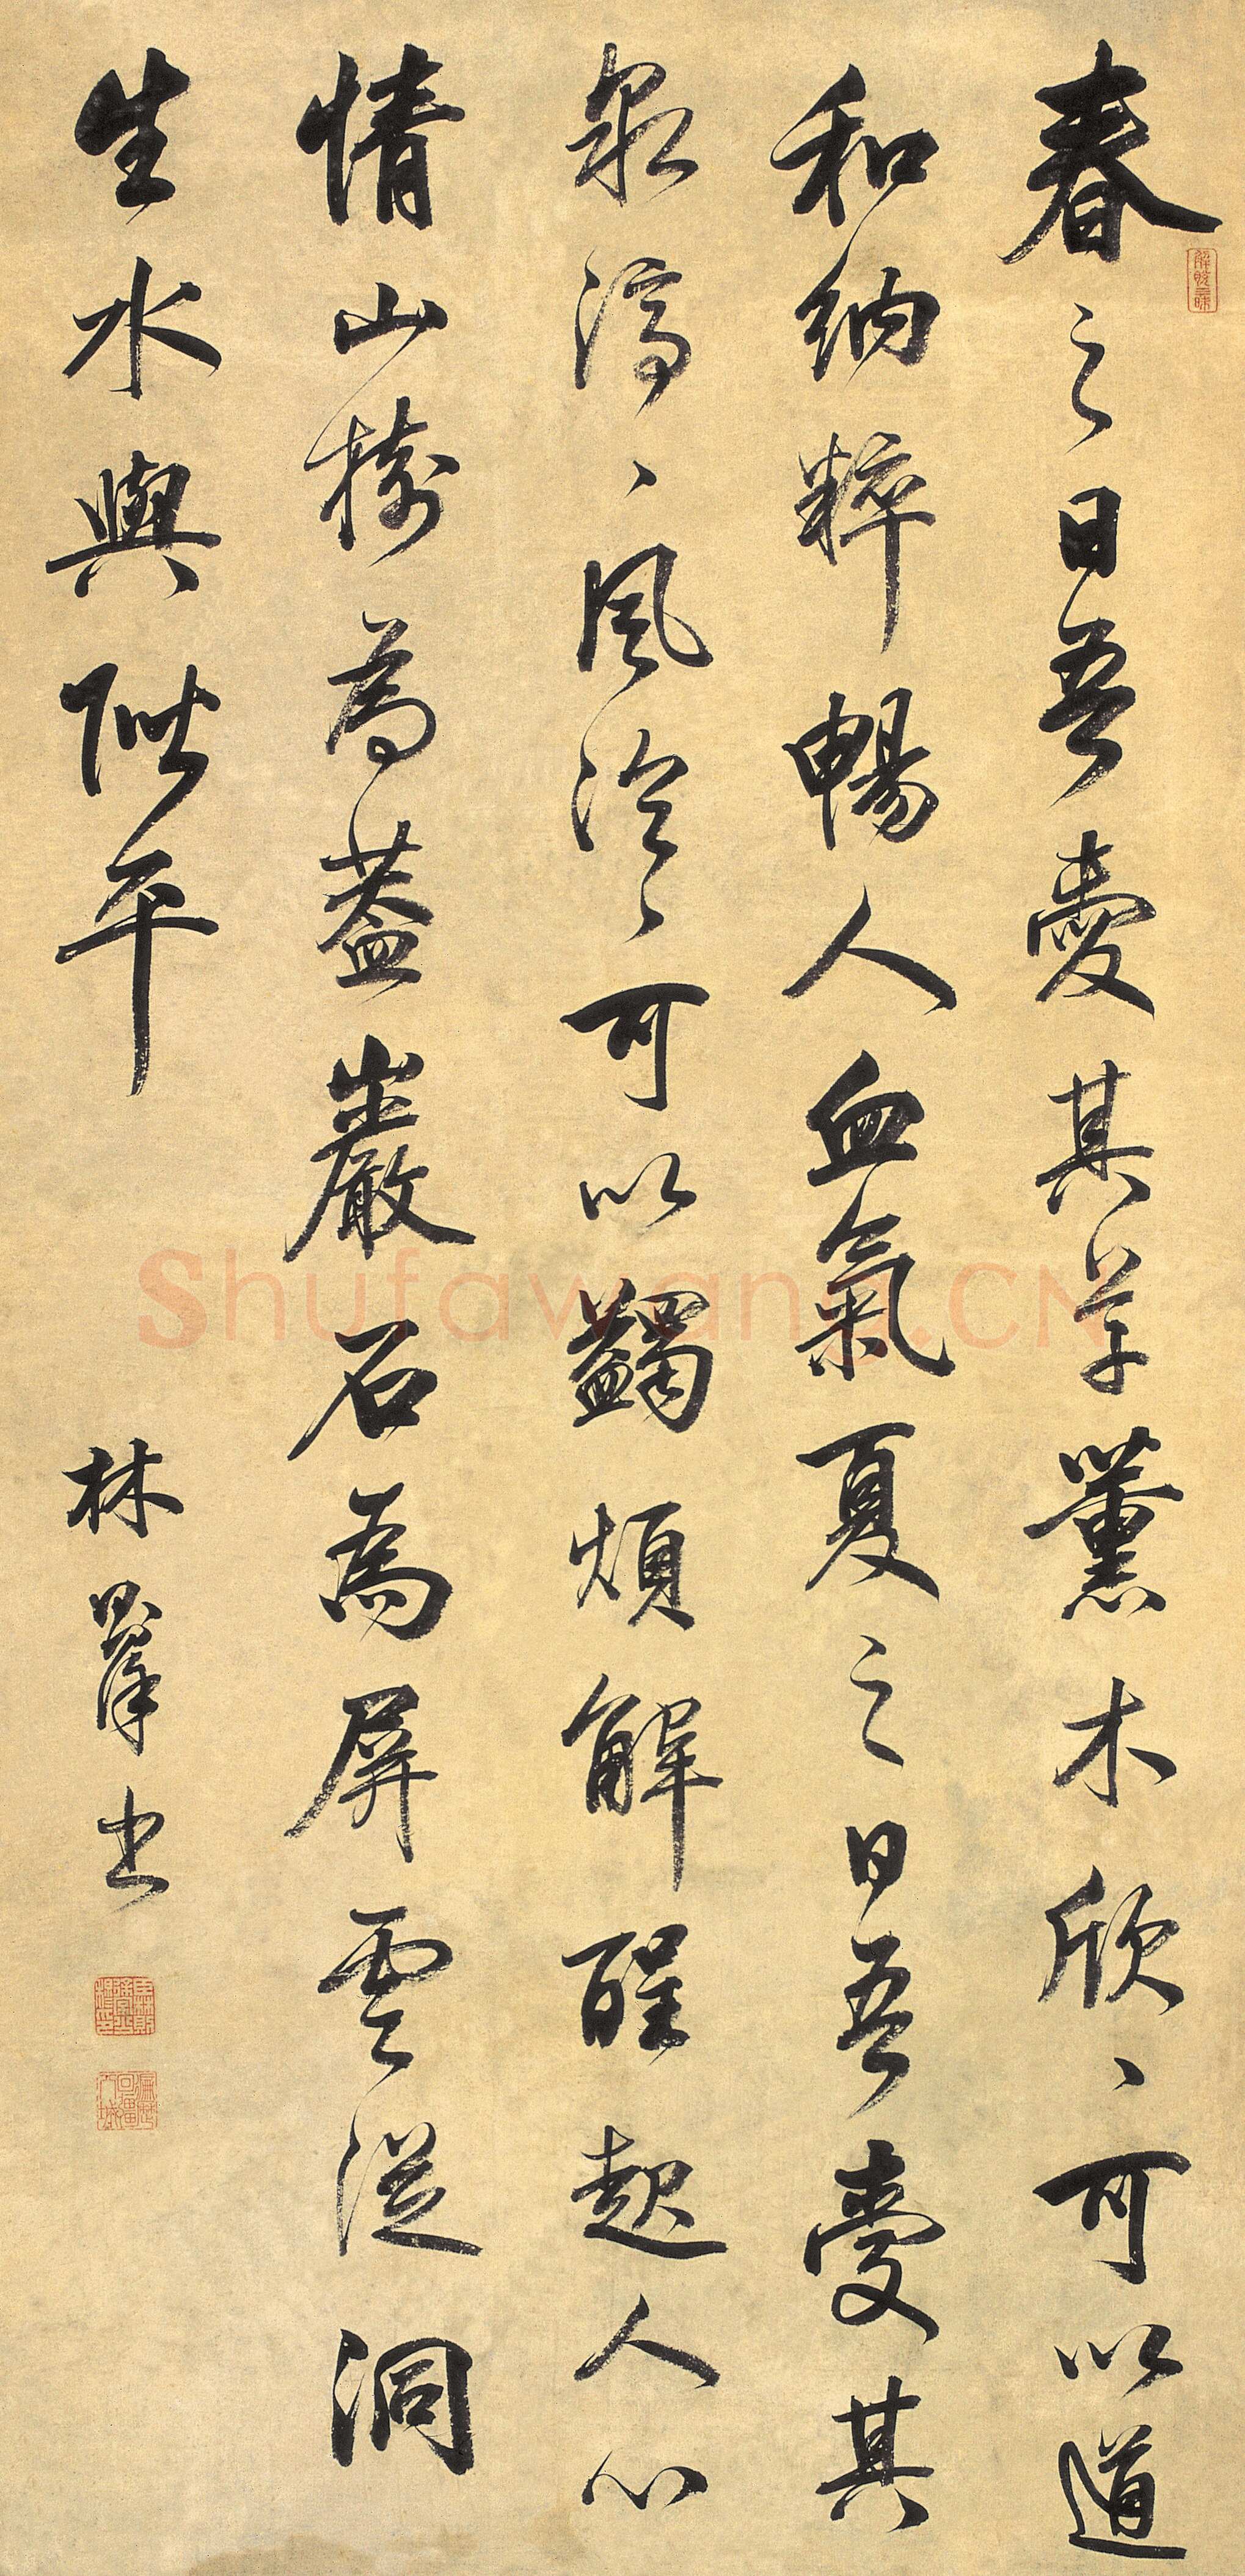 春之日吾愛其草薰木欣、可以道
和納粹暢人血氣夏之日吾愛其
泉渟、風泠、可以蠲煩解酲起人心
情山樹為蓋巖石為屏雲從洞
生水與階平
林則徐書
Shufawang.CN